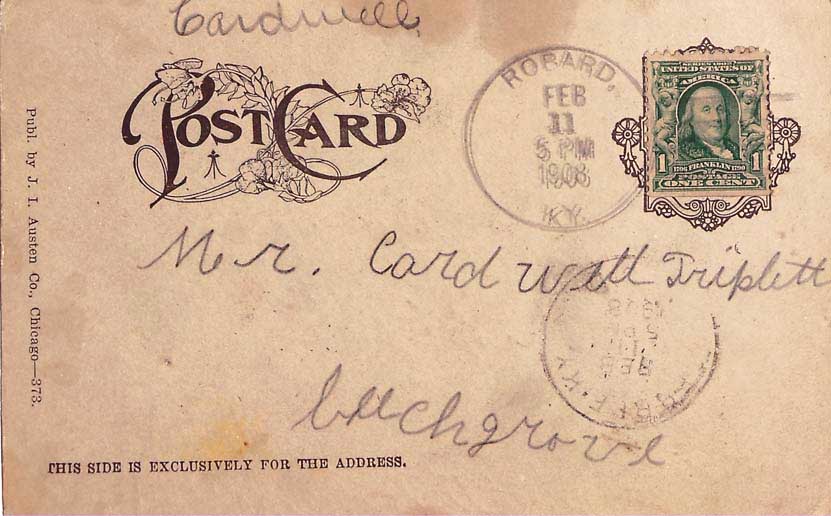 Cardwell
POST CARD
ROBARD,
FEB
11
5 PM
1908
KY.
SERIES 1902
UNITED STATES OF
AMERICA
1 1706 FRANKLIN 1790 1
POSTAGE
ONE CENT
Publ. by J. I. Austen Co., Chicago—373.
Mr. Cardwell Triplett
FEB
11
5 PM
1908
KY
Beechgrove
THIS SIDE IS EXCLUSIVELY FOR THE ADDRESS.